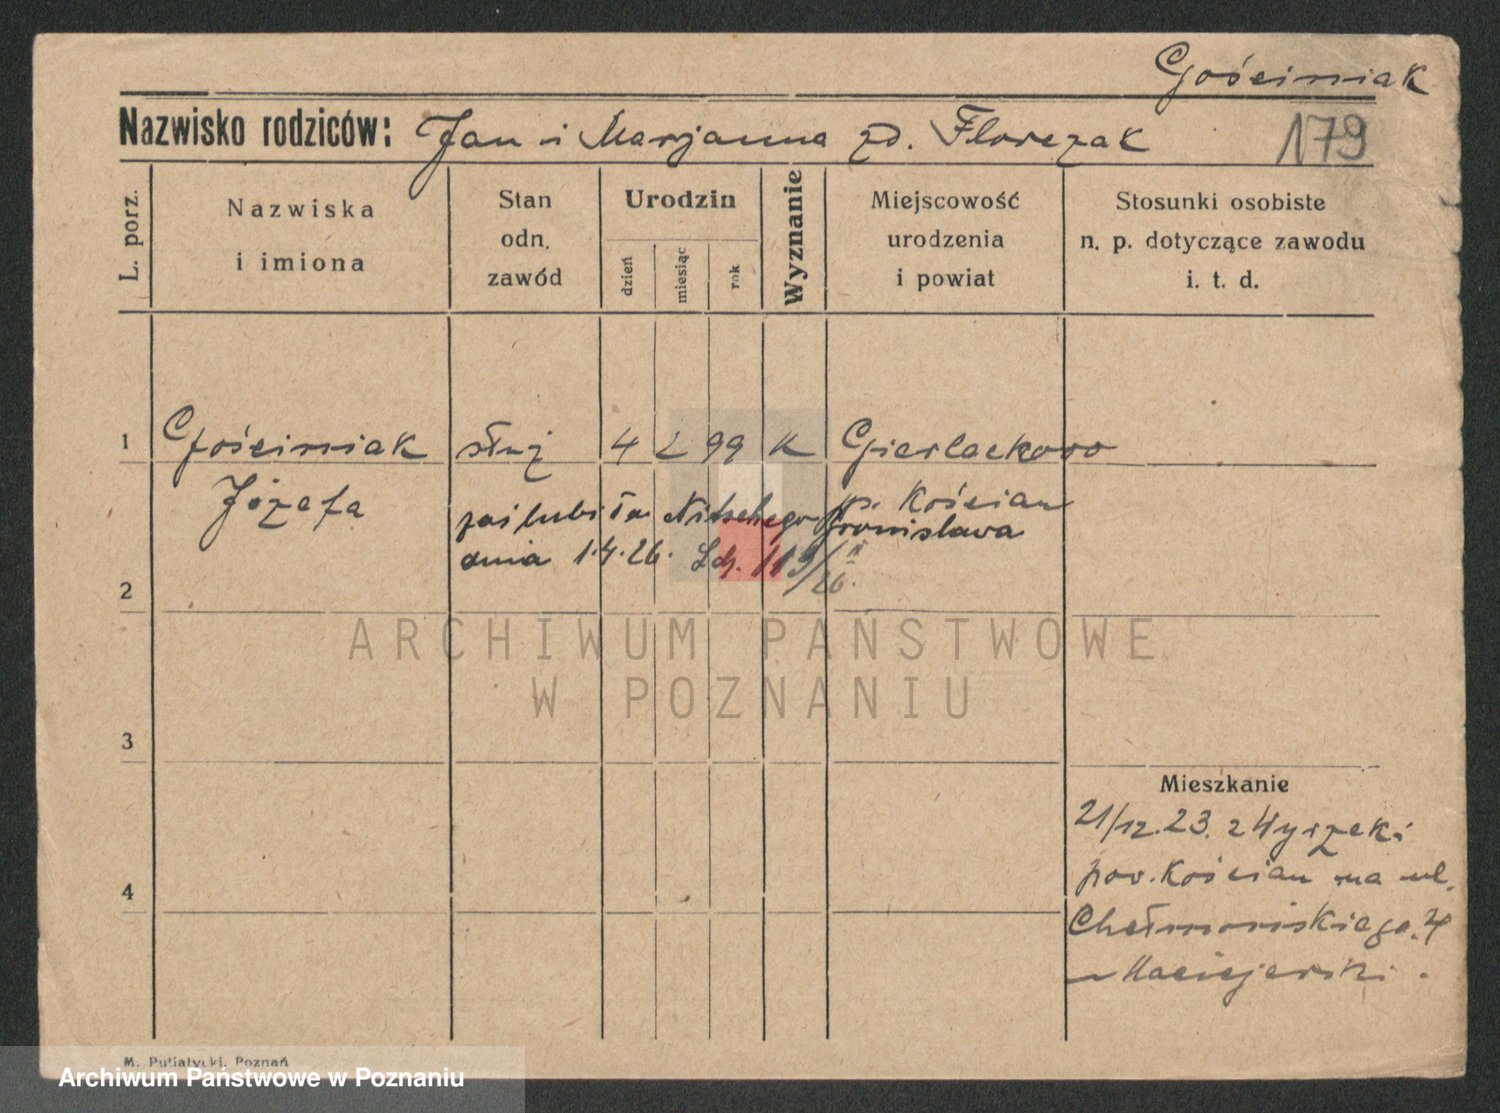 Gościniak
Nazwisko rodziców: Jan i Marjanna zd. Florczak
179
L. porz.
Nazwiska
i imiona
Stan
odn.
zawód
Urodzin
dzień
miesiąc
rok
Wyznanie
Miejscowość
urodzenia
i powiat
Stosunki osobiste
n. p. dotyczące zawodu
i. t. d.
1 Gościniak służ 4 2 99 K Gierlachowo
Józefa p. Kościan
zaślubiła Nitschego Bronisława
dnia 1.4.26. Ldz. 113/II
26.
2
ARCHIWUM PAŃSTWOWE
W POZNANIU
3
Mieszkanie
21/12.23. z Wyrzeki
pow. Kościan na ul.
4
Chełmońskiego 4
Maciejewski.
M. Putiatycki, Poznań
Archiwum Państwowe w Poznaniu